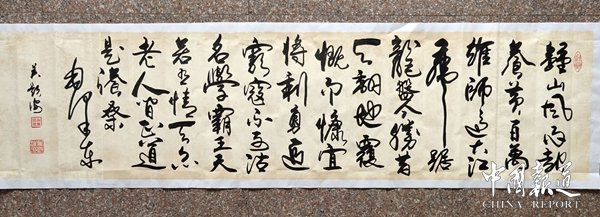 鍾山風雨起
蒼黄百萬
雄師過大江
虎踞
龍盤今勝昔
天翻地覆
慨而慷宜
將剩勇追
窮寇不可沽
名學霸王天
若有情天亦
老人间正道
是滄桑
毛泽东
中国报道
CHINA REPORT